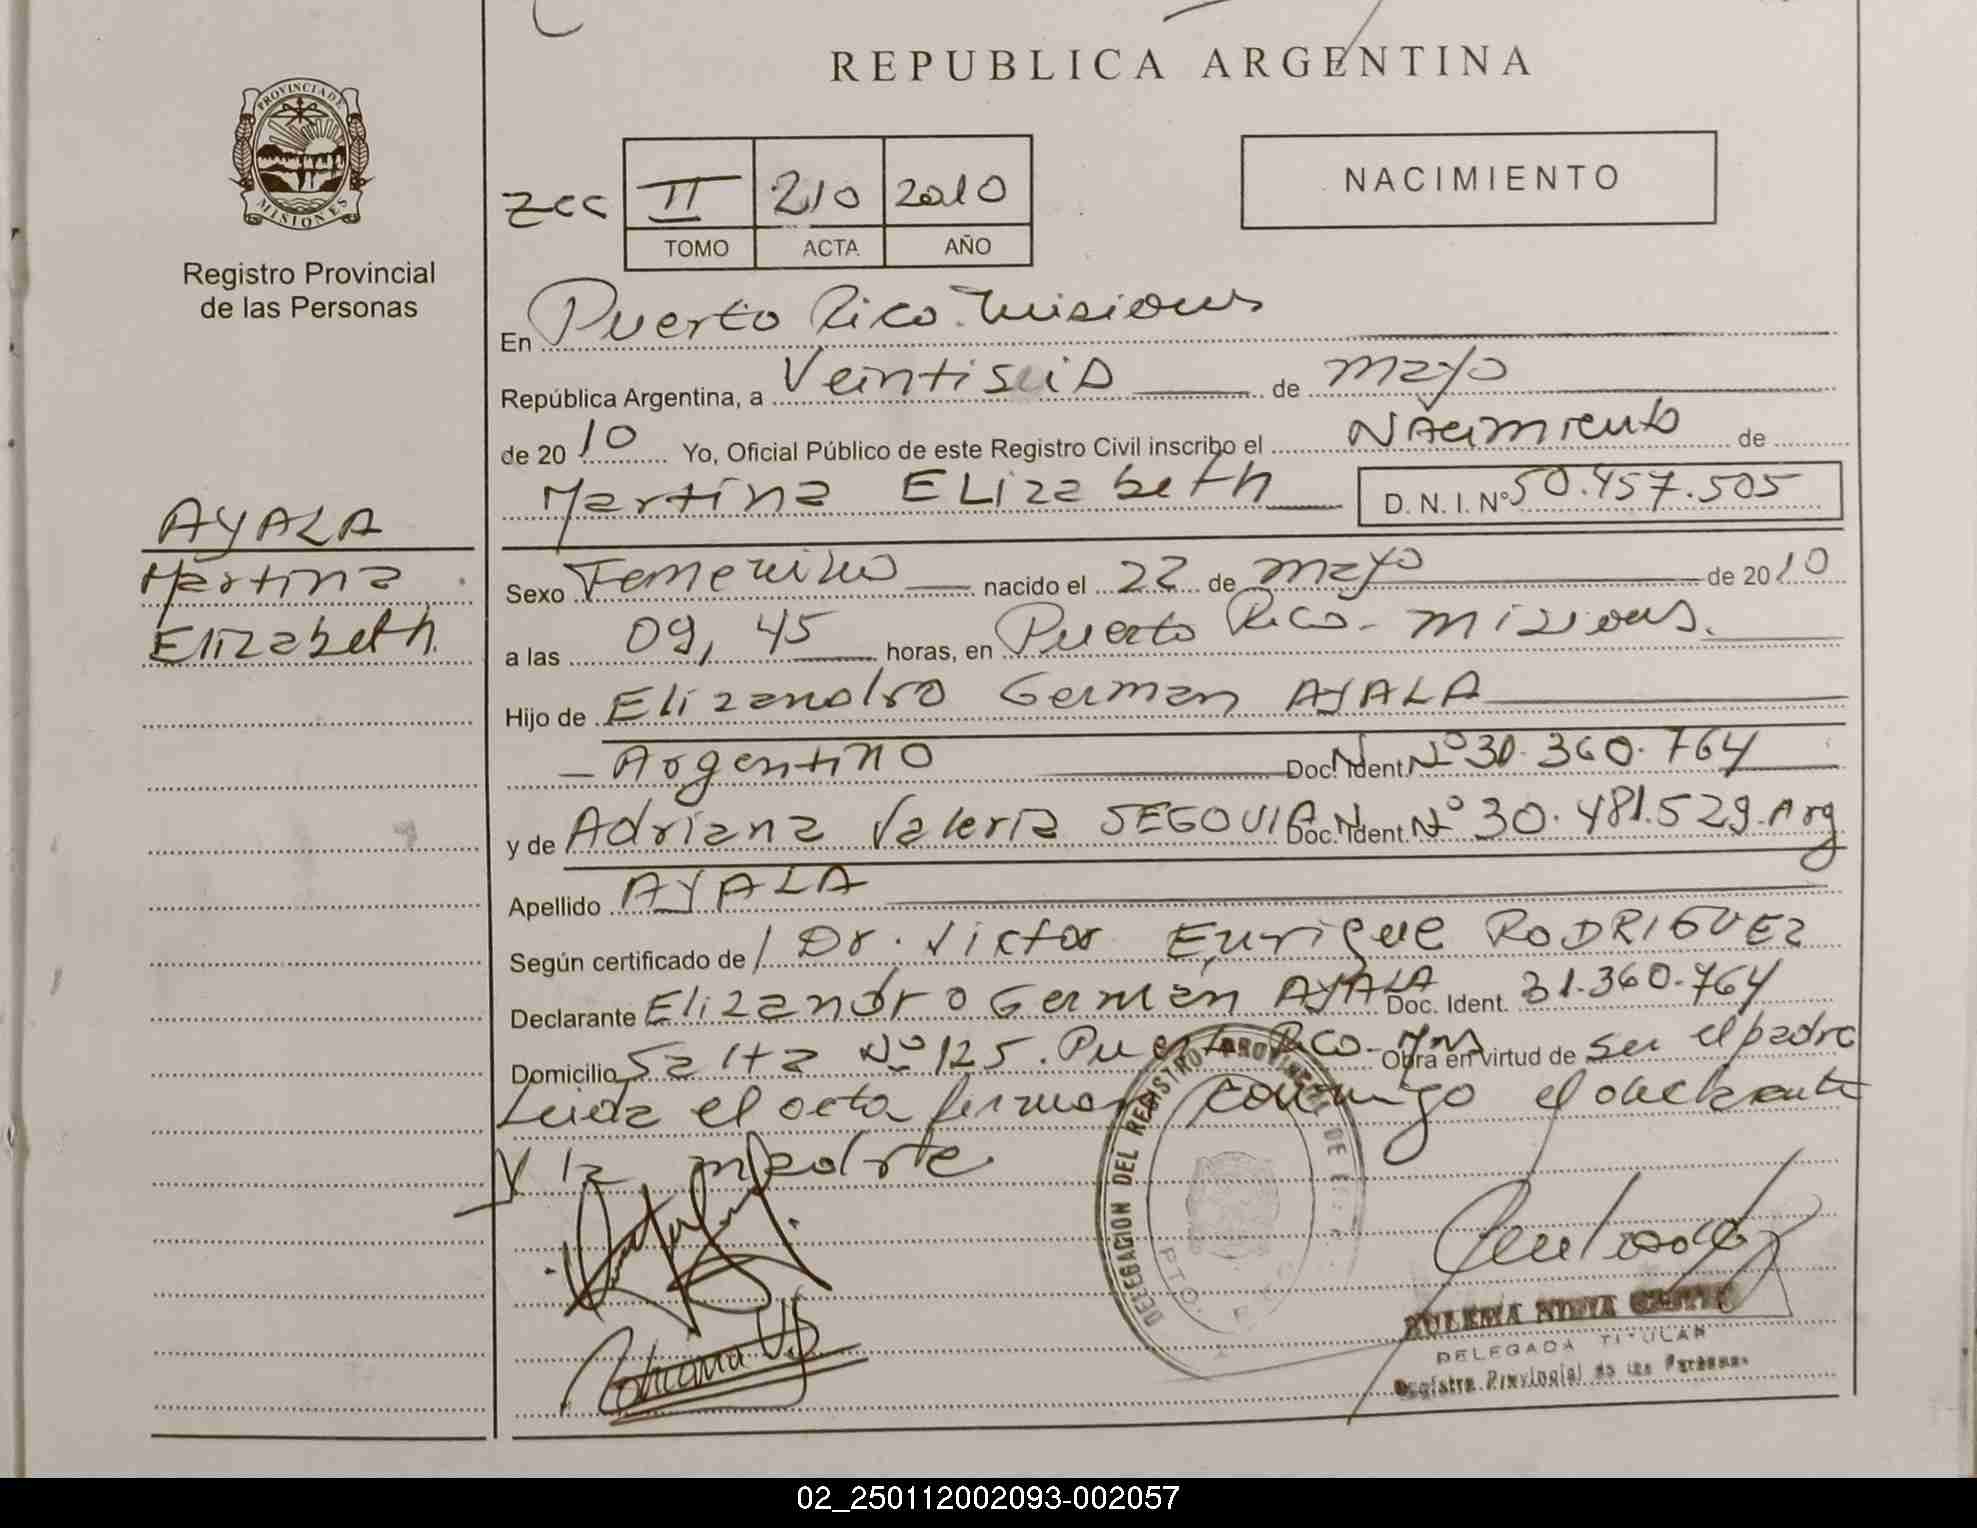 REPUBLICA ARGENTINA
PROVINCIA DE
MISIONES
Registro Provincial
de las Personas
NACIMIENTO
zcc II 210 2010
TOMO ACTA AÑO
En Puerto Rico. Misiones
República Argentina, a Veintiseis de mayo
de 2010 Yo, Oficial Público de este Registro Civil inscribo el Nacimiento de
Martina ELizabeth D. N. I. Nº 50.457.505
AYALA
Martina
Elizabeth.
Sexo Femenino nacido el 22 de mayo de 2010
a las 09,45 horas, en Puerto Rico - Misiones.
Hijo de Elizandro German AYALA
- Argentino Doc. Ident. Nº 30.360.764
y de Adriana Valeria SEGOVIA Doc. Ident. Nº 30.481.529. Arg
Apellido AYALA
Según certificado de Dr. Victor Enrique RODRIGUEZ
Declarante Elizandro Germán AYALA Doc. Ident. 31.360.764
Domicilio Salta Nº 125. Puerto Rico - Mn Obra en virtud de ser el padre
Leida el acta firman conmigo el declarante
y la madre
DELEGACION DEL REGISTRO PROVINCIAL DE
PTO.
DELEGADA TITULAR
Registro Provincial de las Personas
02_250112002093-002057